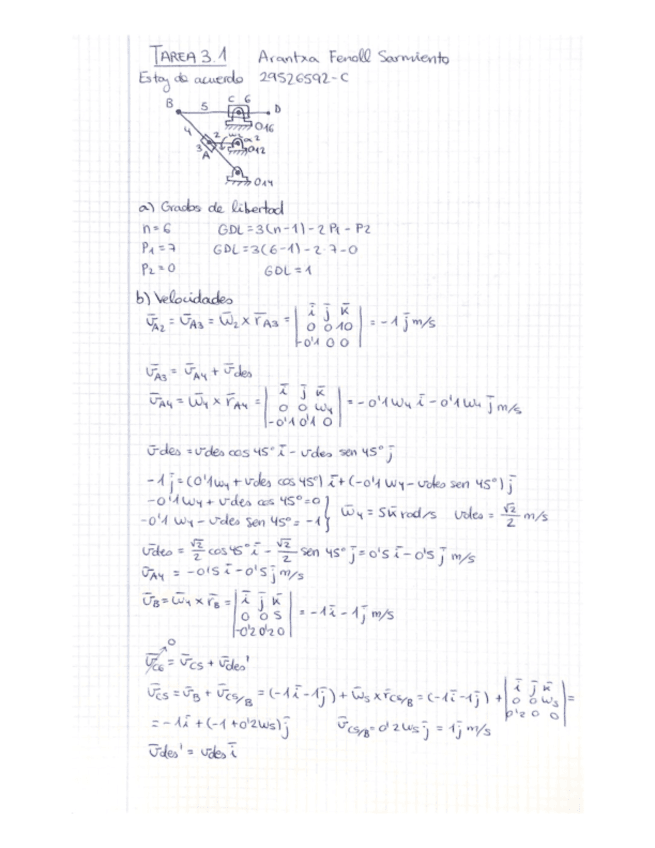 TAREA 3.1 Arantxa Fenoll Sarmiento
Estoy de acuerdo 29526592-C
B 5 C 6 D
O16
4 2 ω2 α2
3 O12
A
O14
a) Grados de libertad
n=6 GDL=3(n-1)-2P1-P2
P1=7 GDL=3(6-1)-2·7-0
P2=0 GDL=1
b) Velocidades
v̄A2 = v̄A3 = ω̄2 x r̄A3 = | ī j̄ k̄ | 0 0 10 | -0'1 0 0 | = -1 j̄ m/s
v̄A3 = v̄A4 + v̄des
v̄A4 = ω̄4 x r̄A4 = | ī j̄ k̄ | 0 0 ω4 | -0'1 0'1 0 | = -0'1ω4 ī - 0'1ω4 j̄ m/s
v̄des = vdes cos 45° ī - vdes sen 45° j̄
-1 j̄ = (0'1ω4 + vdes cos 45°) ī + (-0'1 ω4 - vdes sen 45°) j̄
-0'1ω4 + vdes cos 45° = 0
-0'1 ω4 - vdes sen 45° = -1 } ω̄4 = 5k̄ rad/s vdes = √2/2 m/s
v̄des = √2/2 cos 45° ī - √2/2 sen 45° j̄ = 0'5 ī - 0'5 j̄ m/s
v̄A4 = -0'5 ī - 0'5 j̄ m/s
v̄B = ω̄4 x r̄B = | ī j̄ k̄ | 0 0 5 | -0'2 0'2 0 | = -1ī - 1j̄ m/s
0
v̄C6 = v̄C5 + v̄des'
v̄C5 = v̄B + v̄C5/B = (-1ī-1j̄) + ω̄5 x r̄C5/B = (-1ī-1j̄) + | ī j̄ k̄ | 0 0 ω5 | 0'2 0 0 | =
= -1ī + (-1+0'2ω5) j̄ v̄C5/B = 0'2ω5 j̄ = 1j̄ m/s
v̄des' = vdes ī